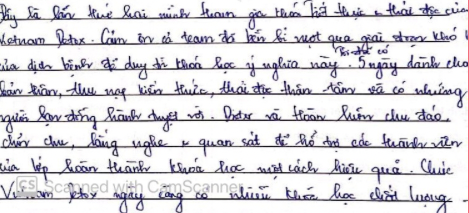 Đây là lần thứ hai mình tham gia khóa tiết thực & thải độc của
Vietnam Detox. Cảm ơn cả team đã bền bỉ vượt qua giai đoạn khó
của dịch bệnh để duy trì khóa học ý nghĩa này. 5 ngày dành cho
bản thân, thu nạp kiến thức, thải độc thân tâm và có những
người bạn đồng hành tuyệt vời. Detox và Hoàn luôn chu đáo,
chỉn chu, lắng nghe & quan sát để hỗ trợ các thành viên
của lớp hoàn thành khóa học một cách hiệu quả. Chúc
Vietnam Detox ngày càng có nhiều khóa học chất lượng.
CS Scanned with CamScanner